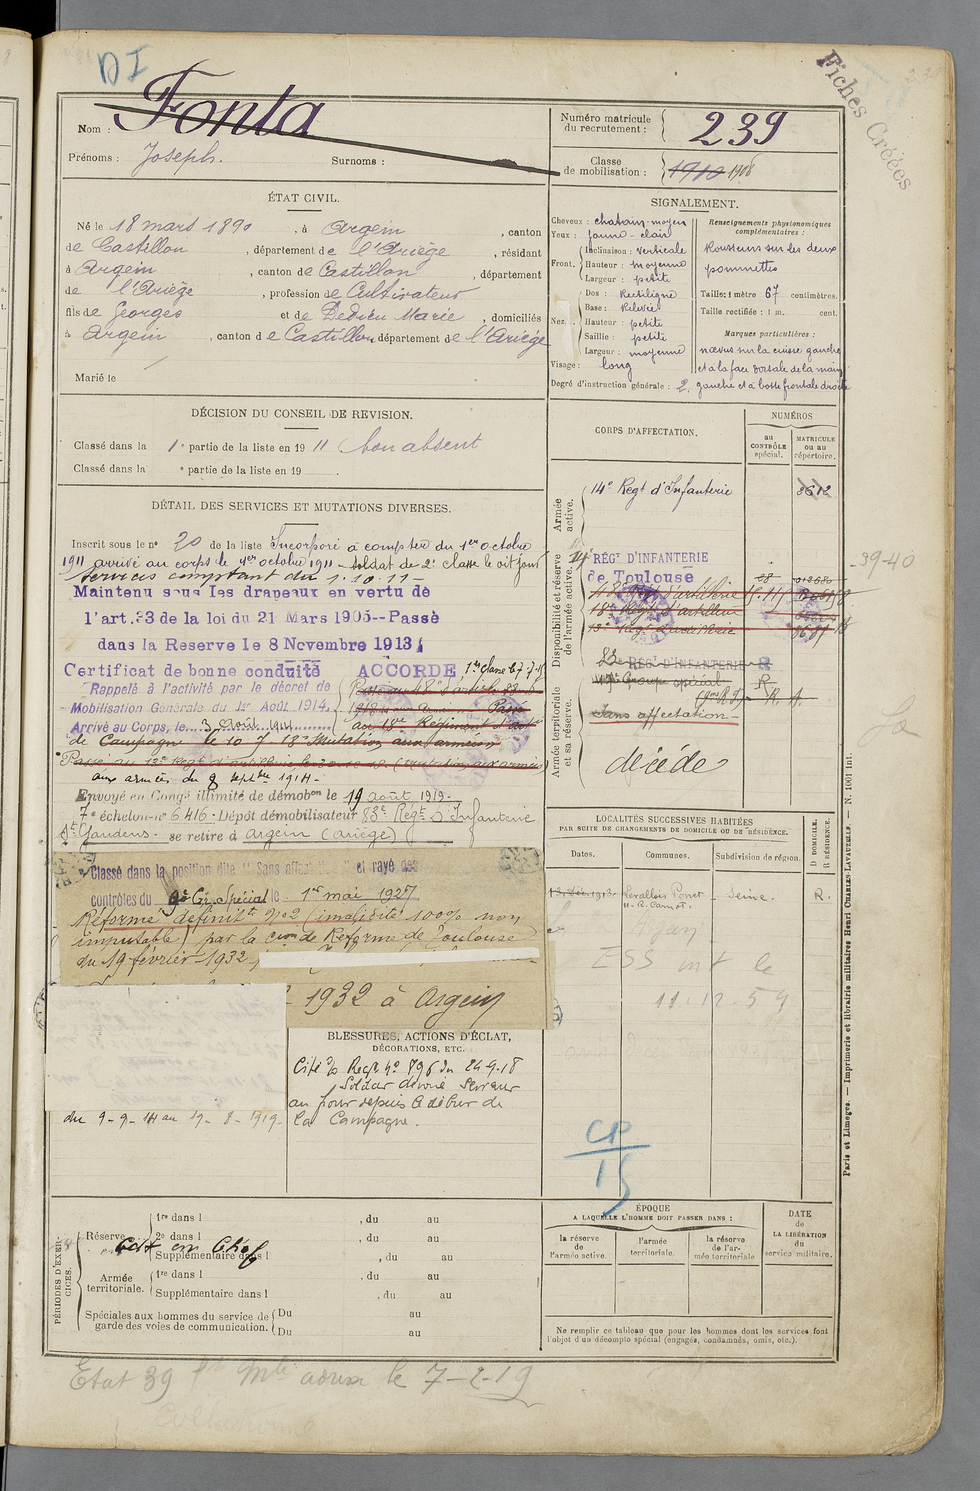 DI
Fiches Créées
Nom : Fonta
Prénoms : Joseph. Surnoms :
Numéro matricule du recrutement : 239
Classe de mobilisation : 1910 1908
ÉTAT CIVIL.
Né le 18 mars 1890, à Argein, canton
de Castillon, département de l'Ariège, résidant
à Argein, canton de Castillon, département
de l'Ariège, profession de Cultivateur
fils de Georges et de Dedieu Marie, domiciliés
à Argein, canton de Castillon département de l'Ariége
Marié le
SIGNALEMENT.
Cheveux : chatain-moyen
Yeux : jaune-clair
Front. Inclinaison : verticale
Hauteur : moyenne
Largeur : petite
Nez. Dos : Rectiligne
Base : Relevée
Hauteur : petite
Saillie : petite
Largeur : moyenne
Visage : long
Renseignements physionomiques complémentaires :
Rousseurs sur les deux
pommettes
Taille : 1 mètre 67 centimètres.
Taille rectifiée : 1 m. cent.
Marques particulières :
nœvus sur la cuisse gauche
et à la face dorsale de la main
gauche et à bosse frontale droite
Degré d'instruction générale : 2.
DÉCISION DU CONSEIL DE REVISION.
Classé dans la 1e partie de la liste en 1911 bon absent
Classé dans la e partie de la liste en 19
DÉTAIL DES SERVICES ET MUTATIONS DIVERSES.
Inscrit sous le n° 20 de la liste Incorporé à compter du 1er octobre
1911 arrivé au corps le 4er octobre 1911 - soldat de 2e classe le dit jour
services comptant du 1.10.11 -
Maintenu sous les drapeaux en vertu de
l'art.33 de la loi du 21 Mars 1905--Passé
dans la Reserve le 8 Novembre 1913
Certificat de bonne conduite ACCORDE
Rappelé à l'activité par le décret de
Mobilisation Générale du 1er Août 1914.
Arrivé au Corps, le 3 Août 1914
de Campagne le 10-7-18 Mutation aux armées
aux armées du 9 septbre 1914-
Envoyé en Congé illimité de démobon le 19 août 1919-
7e échelon-n° 6416 - Dépôt démobilisateur 83e Régt d'Infanterie
St Gaudens - se retire à Argein (Ariège)
Classé dans la position dite "Sans affectation" et rayé des
contrôles du 9e Gr. Spécial le 1er mai 1927
Réformé définitt n°2 (invalidité 100% non
imputable) par la Cion de Réforme de Toulouse
du 19 février 1932
1932 à Argein
du 9-9-14 au 19-8-1919-
BLESSURES, ACTIONS D'ÉCLAT,
DÉCORATIONS, ETC.
Cité à/o Regt n° 896 du 24-9-18
Soldat dévoué Serveur
au jour depuis le début de
la Campagne.
CORPS D'AFFECTATION.
NUMÉROS
au CONTRÔLE spécial.
MATRICULE ou au répertoire.
Armée active.
14e Regt d'Infanterie 3612
Disponibilité et réserve de l'armée active.
RÉGT D'INFANTERIE
de Toulouse
39-40
18e Régt d'artillerie
RÉGT D'INFANTERIE
Groupe spécial
Armée territoriale et sa réserve.
Sans affectation
décédé
LOCALITÉS SUCCESSIVES HABITÉES
PAR SUITE DE CHANGEMENTS DE DOMICILE OU DE RÉSIDENCE.
Dates. Communes. Subdivision de région. D DOMICILE. R RÉSIDENCE.
Levallois Perret Seine. R.
11-R. Carnot.
11.12 59
CP
15
PÉRIODES D'EXERCICES.
Réserve
1re dans l , du au
2e dans l , du au
Supplémentaire dans l , du au
Armée territoriale.
1re dans l , du au
Supplémentaire dans l , du au
Spéciales aux hommes du service de garde des voies de communication.
Du au
Du au
ÉPOQUE
A LAQUELLE L'HOMME DOIT PASSER DANS :
la réserve de l'armée active.
l'armée territoriale.
la réserve de l'armée territoriale
DATE de LA LIBÉRATION du service militaire.
Ne remplir ce tableau que pour les hommes dont les services font
l'objet d'un décompte spécial (engagés, condamnés, omis, etc.).
Paris et Limoges. — Imprimerie et librairie militaires Henri CHARLES-LAVAUZELLE. — N. 1001 int.
Etat 39 le 7-2-19